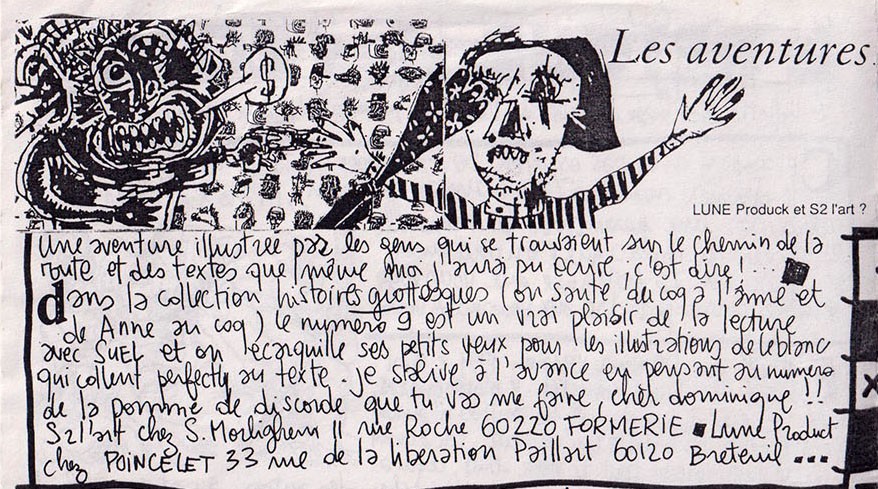 Les aventures.
LUNE Produck et S2 l'art ?
Une aventure illustrée par les gens qui se trouvaient sur le chemin de la
route et des textes que même moi j'aurai pu ecrire, c'est dire !...
dans la collection histoires grottesques (on saute du coq à l'anne et
de Anne au coq) le numero 9 est un vrai plaisir de la lecture
avec SUEL et on ecarquille ses petits yeux pour les illustrations de leblanc
qui collent perfectly au texte. je salive à l'avance en pensant au numero
de la pomme de discorde que tu vas me faire, cher dominique !!
S2 l'art chez S. Morlighem 11 rue Roche 60220 FORMERIE ▪ Lune Product
chez POINCELET 33 rue de la liberation Paillart 60120 Breteuil ...